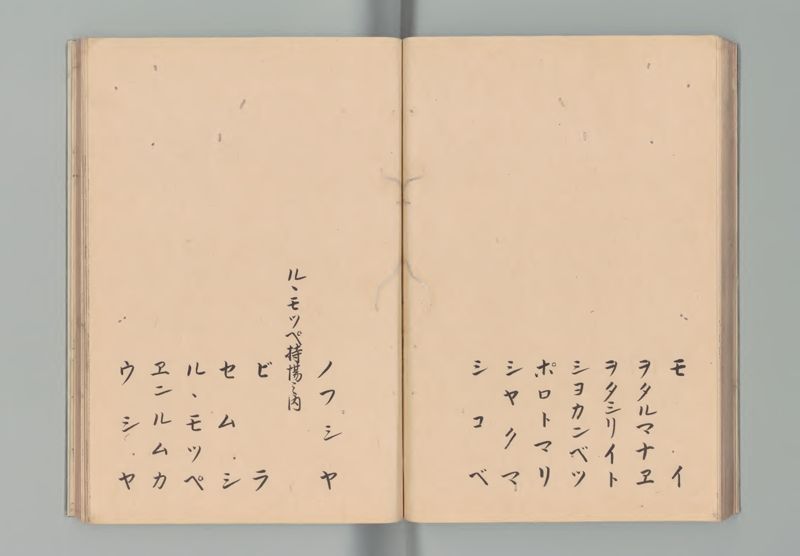 モイ
ヲタルマナヱ
ヲタシリイト
シヨカンベツ
ポロトマリ
シヤクマ
シコベ
ノフシヤ
ル丶モツペ持場之内
ビラ
セムシ
ル丶モツペ
ヱンルムカ
ウシヤ